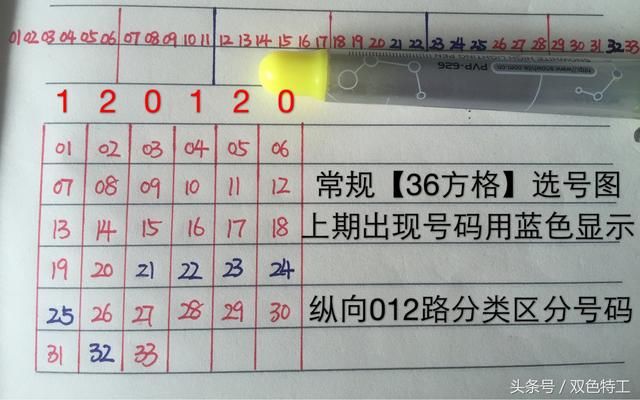 01 02 03 04 05 06 07 08 09 10 11 12 13 14 15 16 17 18 19 20 21 22 23 24 25 26 27 28 29 30 31 32 33
PVP-626
1 2 0 1 2 0
01 02 03 04 05 06
07 08 09 10 11 12 常规【36方格】选号图
13 14 15 16 17 18 上期出现号码用蓝色显示
19 20 21 22 23 24
25 26 27 28 29 30 纵向012路分类区分号码
31 32 33
头条号 / 双色特工